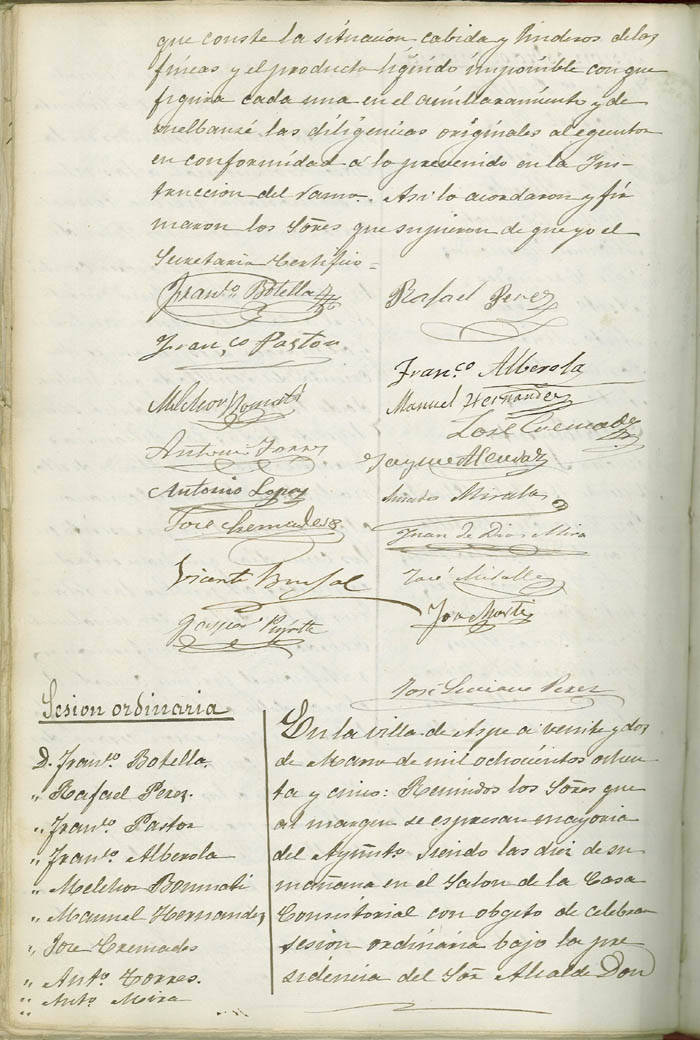 que conste la situacion cabida y linderos de las
fincas y el producto liquido imponible con que
figura cada una en el amillaramiento y de
vuelbanse las diligencias originales al egecutor
en conformidad á lo prevenido en la Ins-
truccion del ramo. Asi lo acordaron y fir
maron los Sōres que supieron de que yo el
Secretario Certifico =
Franco. Botella
Rafael Perez
Franco Pastor
Franco. Alberola
Melchor Bonmati
Manuel Hernandez
José Cremades
Antonio Torres
Jayme Alcaraz
Antonio Lopez
Miralles
Jose Cremades
Juan de Dios Mira
José Miralles
Vicente
Jose Martí
Gaspar
José Luciano Perez
Sesion ordinaria
D. Franco. Botella.
„ Rafael Perez.
„ Franco. Pastor
„ Franco. Alberola
„ Melchor Bonmati
„ Manuel Hernandez
„ Jose Cremades
„ Anto. Torres.
„ Anto. Mira
En la villa de Aspe a veinte y dos
de Marzo de mil ochocientos ochen
ta y cinco: Reunidos los Sōres que
al margen se espresan mayoria
del Ayūnto. siendo las diez de su
mañana en el Salon de la Casa
Consistorial con obgeto de celebrar
sesion ordinaria bajo la pre
sidencia del Sōr Alcalde Don